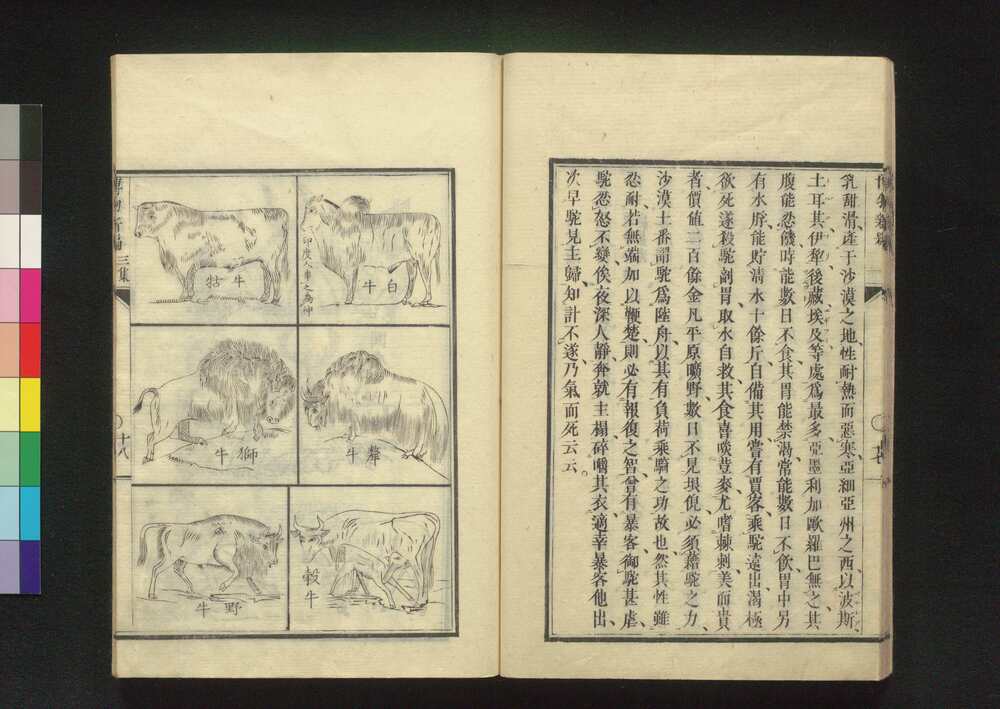 乳甜滑、產于沙漠之地、性耐熱而惡寒、亞細亞州之西、以波斯、
土耳其、伊犂、後藏、埃及等處爲最多、亞墨利加歐羅巴無之、其
腹能忍餓、時能數日不食、其胃能禁渴、常能數日不飲、胃中另
有水脬、能貯清水十餘斤、自備其用、嘗有賈客乘駝遠出、渴極
欲死、遂殺駝剖胃、取水自救、其食喜啖荳麥、尤嗜棘刺、美而貴
者、價値二百餘金、凡平原曠野、數日不見垠倪、必須藉駝之力、
沙漠土番謂駝爲陸舟、以其有負荷乘騎之功故也、然其性雖
忍耐、若無端加以鞭楚、則必有報復之智、曾有暴客御駝甚虐、
駝忿怒不變、俟夜深人靜、奔就主榻、碎嚼其衣、適幸暴客他出、
次早駝見主歸、知計不遂、乃氣而死云云。
博物新編
三集
十八
白牛
印度人奉之爲神
牯牛
犛牛
獅牛
㝅牛
野牛